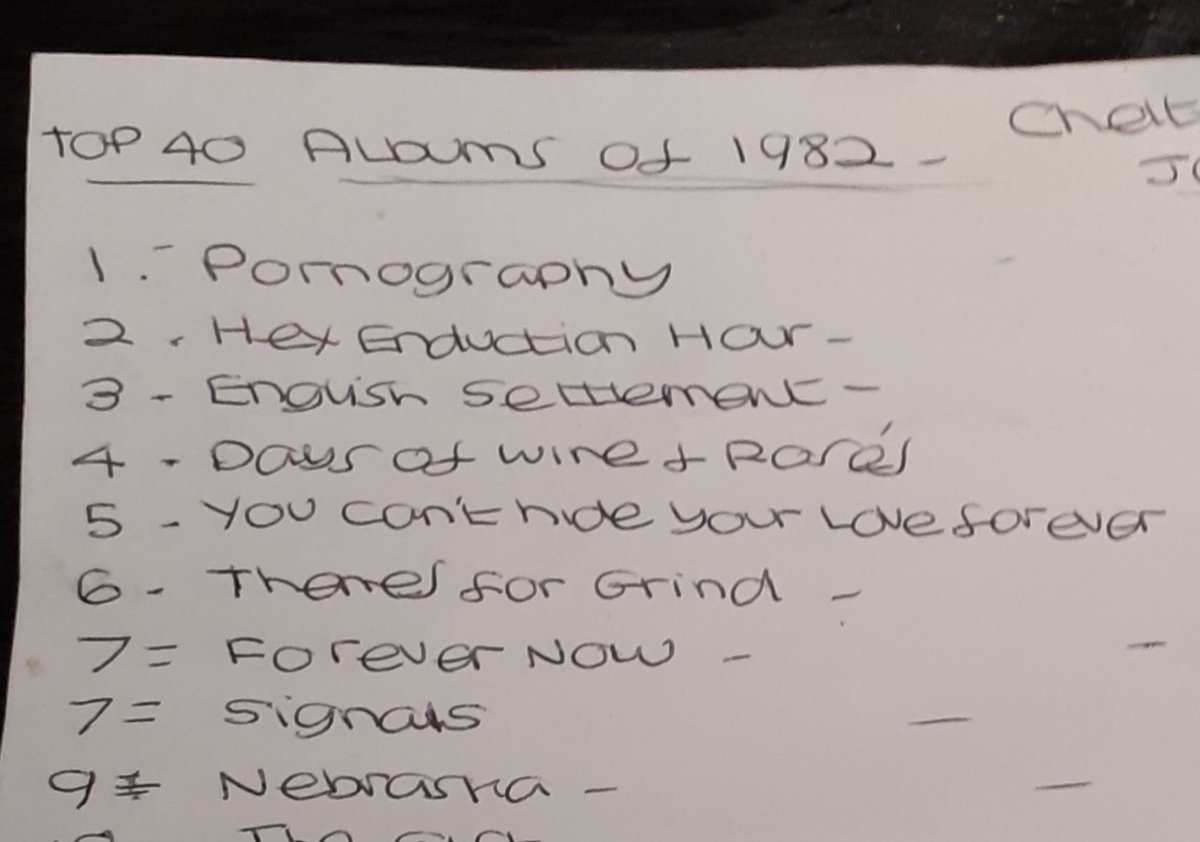 TOP 40 Albums of 1982 - Chelt
JO
1.- Pornography
2. Hex Enduction Hour -
3 - English Settlement -
4. Days of Wine + Rose's
5 - You can't hide your Love forever
6 - Themes for Grind -
7 = Forever Now - -
7 = Signals -
9 = Nebraska - -
The Gift